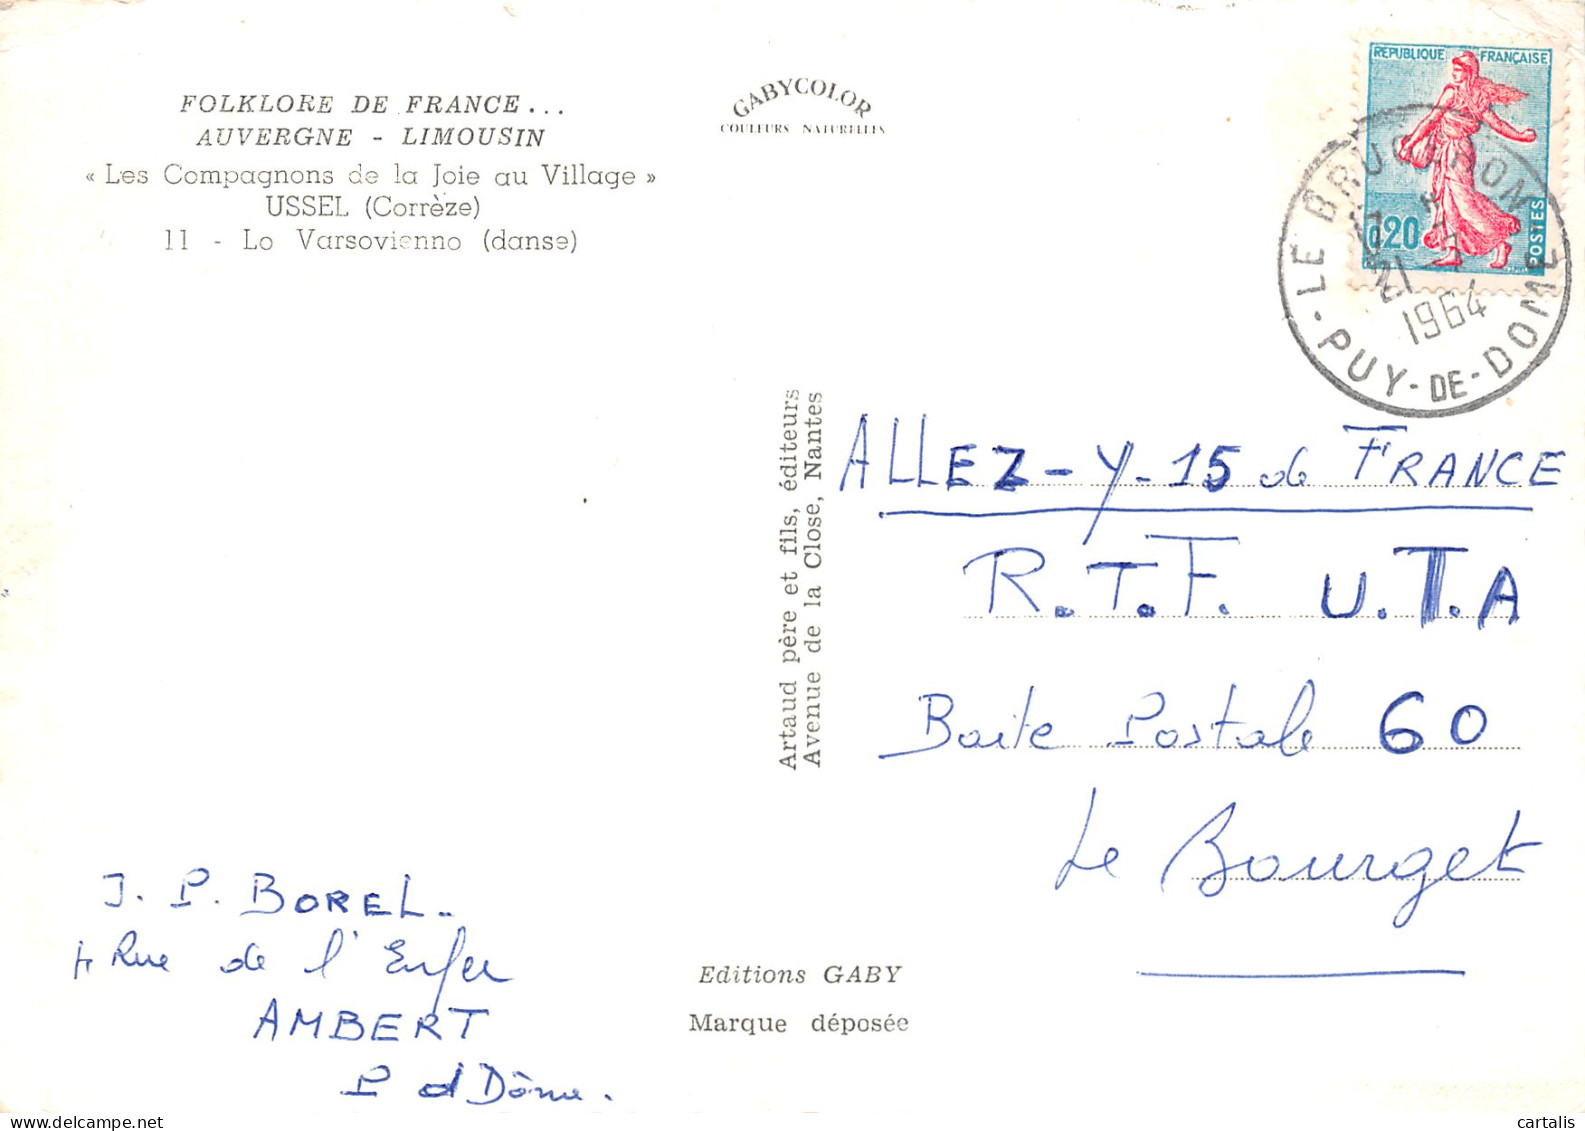 FOLKLORE DE FRANCE...
AUVERGNE - LIMOUSIN
« Les Compagnons de la Joie au Village »
USSEL (Corrèze)
11 - Lo Varsovienno (danse)
GABYCOLOR
COULEURS NATURELLES
REPUBLIQUE FRANÇAISE
0,20
POSTES
LE BRUGERON
21 - 7
1964
PUY-DE-DOME
Artaud père et fils, éditeurs
Avenue de la Close, Nantes
ALLEZ-Y-15 de FRANCE
R.T.F. U.T.A
Boite Postale 60
Le Bourget
J. P. BOREL
4 Rue de l'Enfer
AMBERT
P d Dôme.
Editions GABY
Marque déposée
cartalis